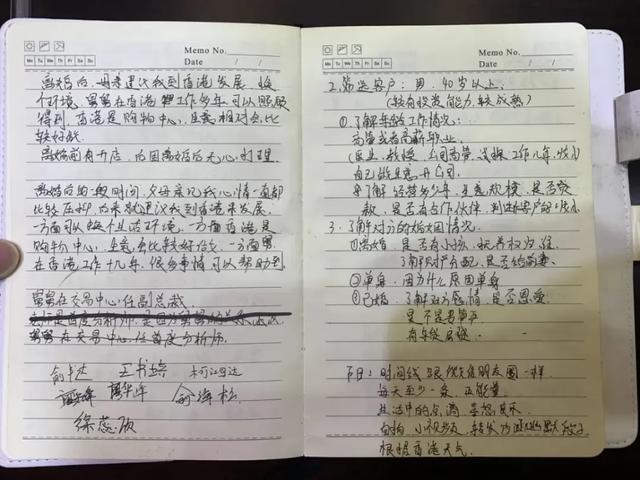 Memo No.
Mo Tu We Th Fr Sa Su
Date / /
离婚后，母亲建议我到香港发展，换
个环境，舅舅在香港工作多年可以照顾
得到，香港是购物中心，生意相对会比
较好做
离婚前有开店，内因离婚后无心打理
离婚后的一段时间，父母亲见我心情一直都
比较压抑，后来就建议我到香港来发展，
一方面可以换个生活环境，一方面香港是
购物中心，生意会比较好做，一方面舅舅
在香港工作十几年，很多事情可以帮助到
舅舅在交易中心任副总裁
舅舅在交易中心，任首席分析师。
徐蕊欣
Memo No.
Mo Tu We Th Fr Sa Su
Date / /
2、筛选客户：男，40岁以上，
（较有投资能力，较成熟）
①了解车验工作情况：
高管或者高薪职业，
（医生、教授、公司高管，谈谈工作几年，收入）
自己做生意，开公司
了解经营多少年，生意规模，是否贷
款，是否有合作伙伴，
3、了解对方的婚姻情况。
①离婚，是否有小孩，抚养权归谁，
了解财产分配，是否给
②单身，因为什么原因单身
③已婚，了解双方感情，是否恩爱，
是不是
有
节日：时间线跟微信朋友圈一样
每天至少一条，正能量，
生活中的点滴，
自拍，小视频，转发
根据香港天气，